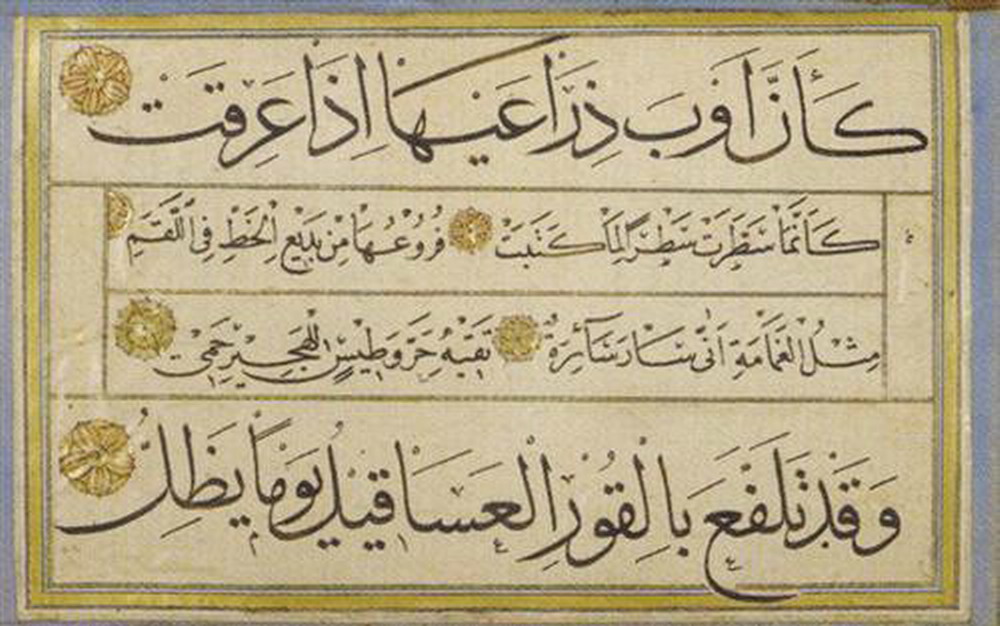 كَأَنَّ اَوْبَ ذِرَاعَيْهَا اِذَا عَرِقَتْ
كَاَنَّمَا سَطَرَتْ سَطْرًا لِمَا كَتَبَتْ فُرُوعُهَا مِنْ بَدِيعِ الْخَطِّ فِي اللَّقَمِ
مِثْلُ الْغَمَامَةِ اَنّٰى سَارَ سَآئِرَةً تَقِيهِ حَرَّ وَطِيسٍ لِلْهَجِيرِ حَمِي
وَقَدْ تَلَفَّعَ بِالْقُورِ الْعَسَاقِيلُ يَوْمًا يَظَلُّ